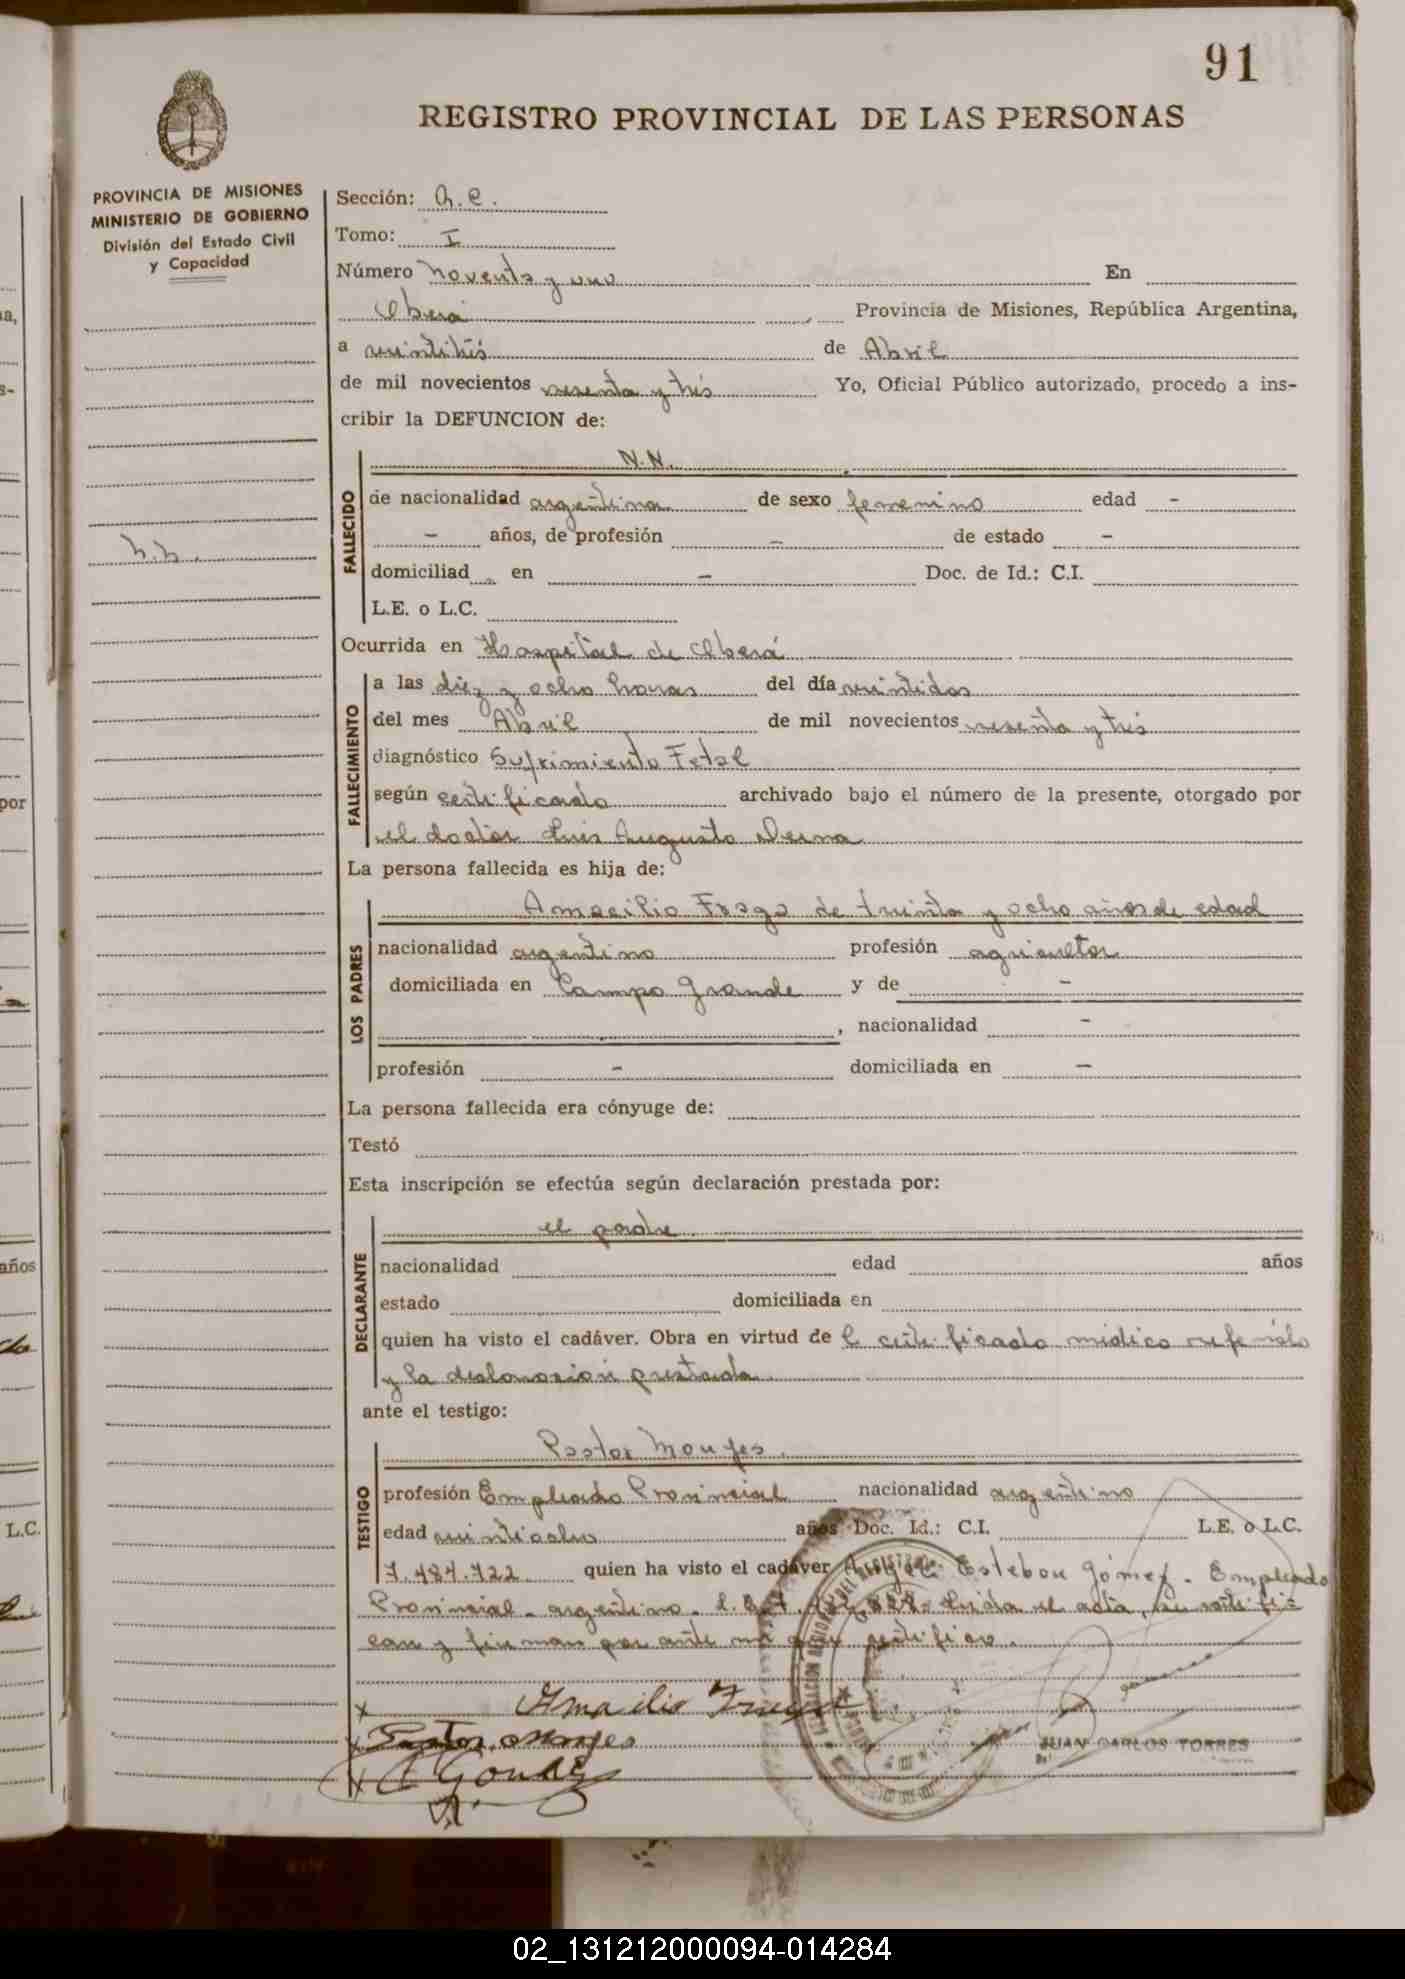 91
REGISTRO PROVINCIAL DE LAS PERSONAS
PROVINCIA DE MISIONES
MINISTERIO DE GOBIERNO
División del Estado Civil
y Capacidad
Sección:
Tomo: I
Número Noventa y uno En
Oberá Provincia de Misiones, República Argentina,
a veintitrés de Abril
de mil novecientos sesenta y trés Yo, Oficial Público autorizado, procedo a ins-
cribir la DEFUNCION de:
N.N.
FALLECIDO
de nacionalidad argentina de sexo femenino edad -
- años, de profesión - de estado -
N.N.
domiciliad en - Doc. de Id.: C.I.
L.E. o L.C.
Ocurrida en Hospital de Oberá
FALLECIMIENTO
a las diez y ocho horas del día veintidos
del mes Abril de mil novecientos sesenta y trés
diagnóstico Sufrimiento Fetal
según certificado archivado bajo el número de la presente, otorgado por
el doctor Luis Augusto Derna
La persona fallecida es hija de:
LOS PADRES
Amacilio Fraga de treinta y ocho años de edad
nacionalidad argentino profesión agricultor
domiciliada en Campo Grande y de -
, nacionalidad -
profesión - domiciliada en -
La persona fallecida era cónyuge de:
Testó
Esta inscripción se efectúa según declaración prestada por:
DECLARANTE
el padre
nacionalidad edad años
estado domiciliada en
quien ha visto el cadáver. Obra en virtud de l certificado médico referido
y la declaración prestada
ante el testigo:
TESTIGO
Pastor Monjes.
profesión Empleado Provincial nacionalidad argentino
edad veintiocho años Doc. Id.: C.I. L.E. o L.C.
7.484.722 quien ha visto el cadáver Esteban Gómez. Empleado
Provincial - argentino. Leída el acta, se ratifi-
can y firman por ante mí que certifico.
Amacilio
Pastor Monjes
JUAN CARLOS TORRES
02_131212000094-014284